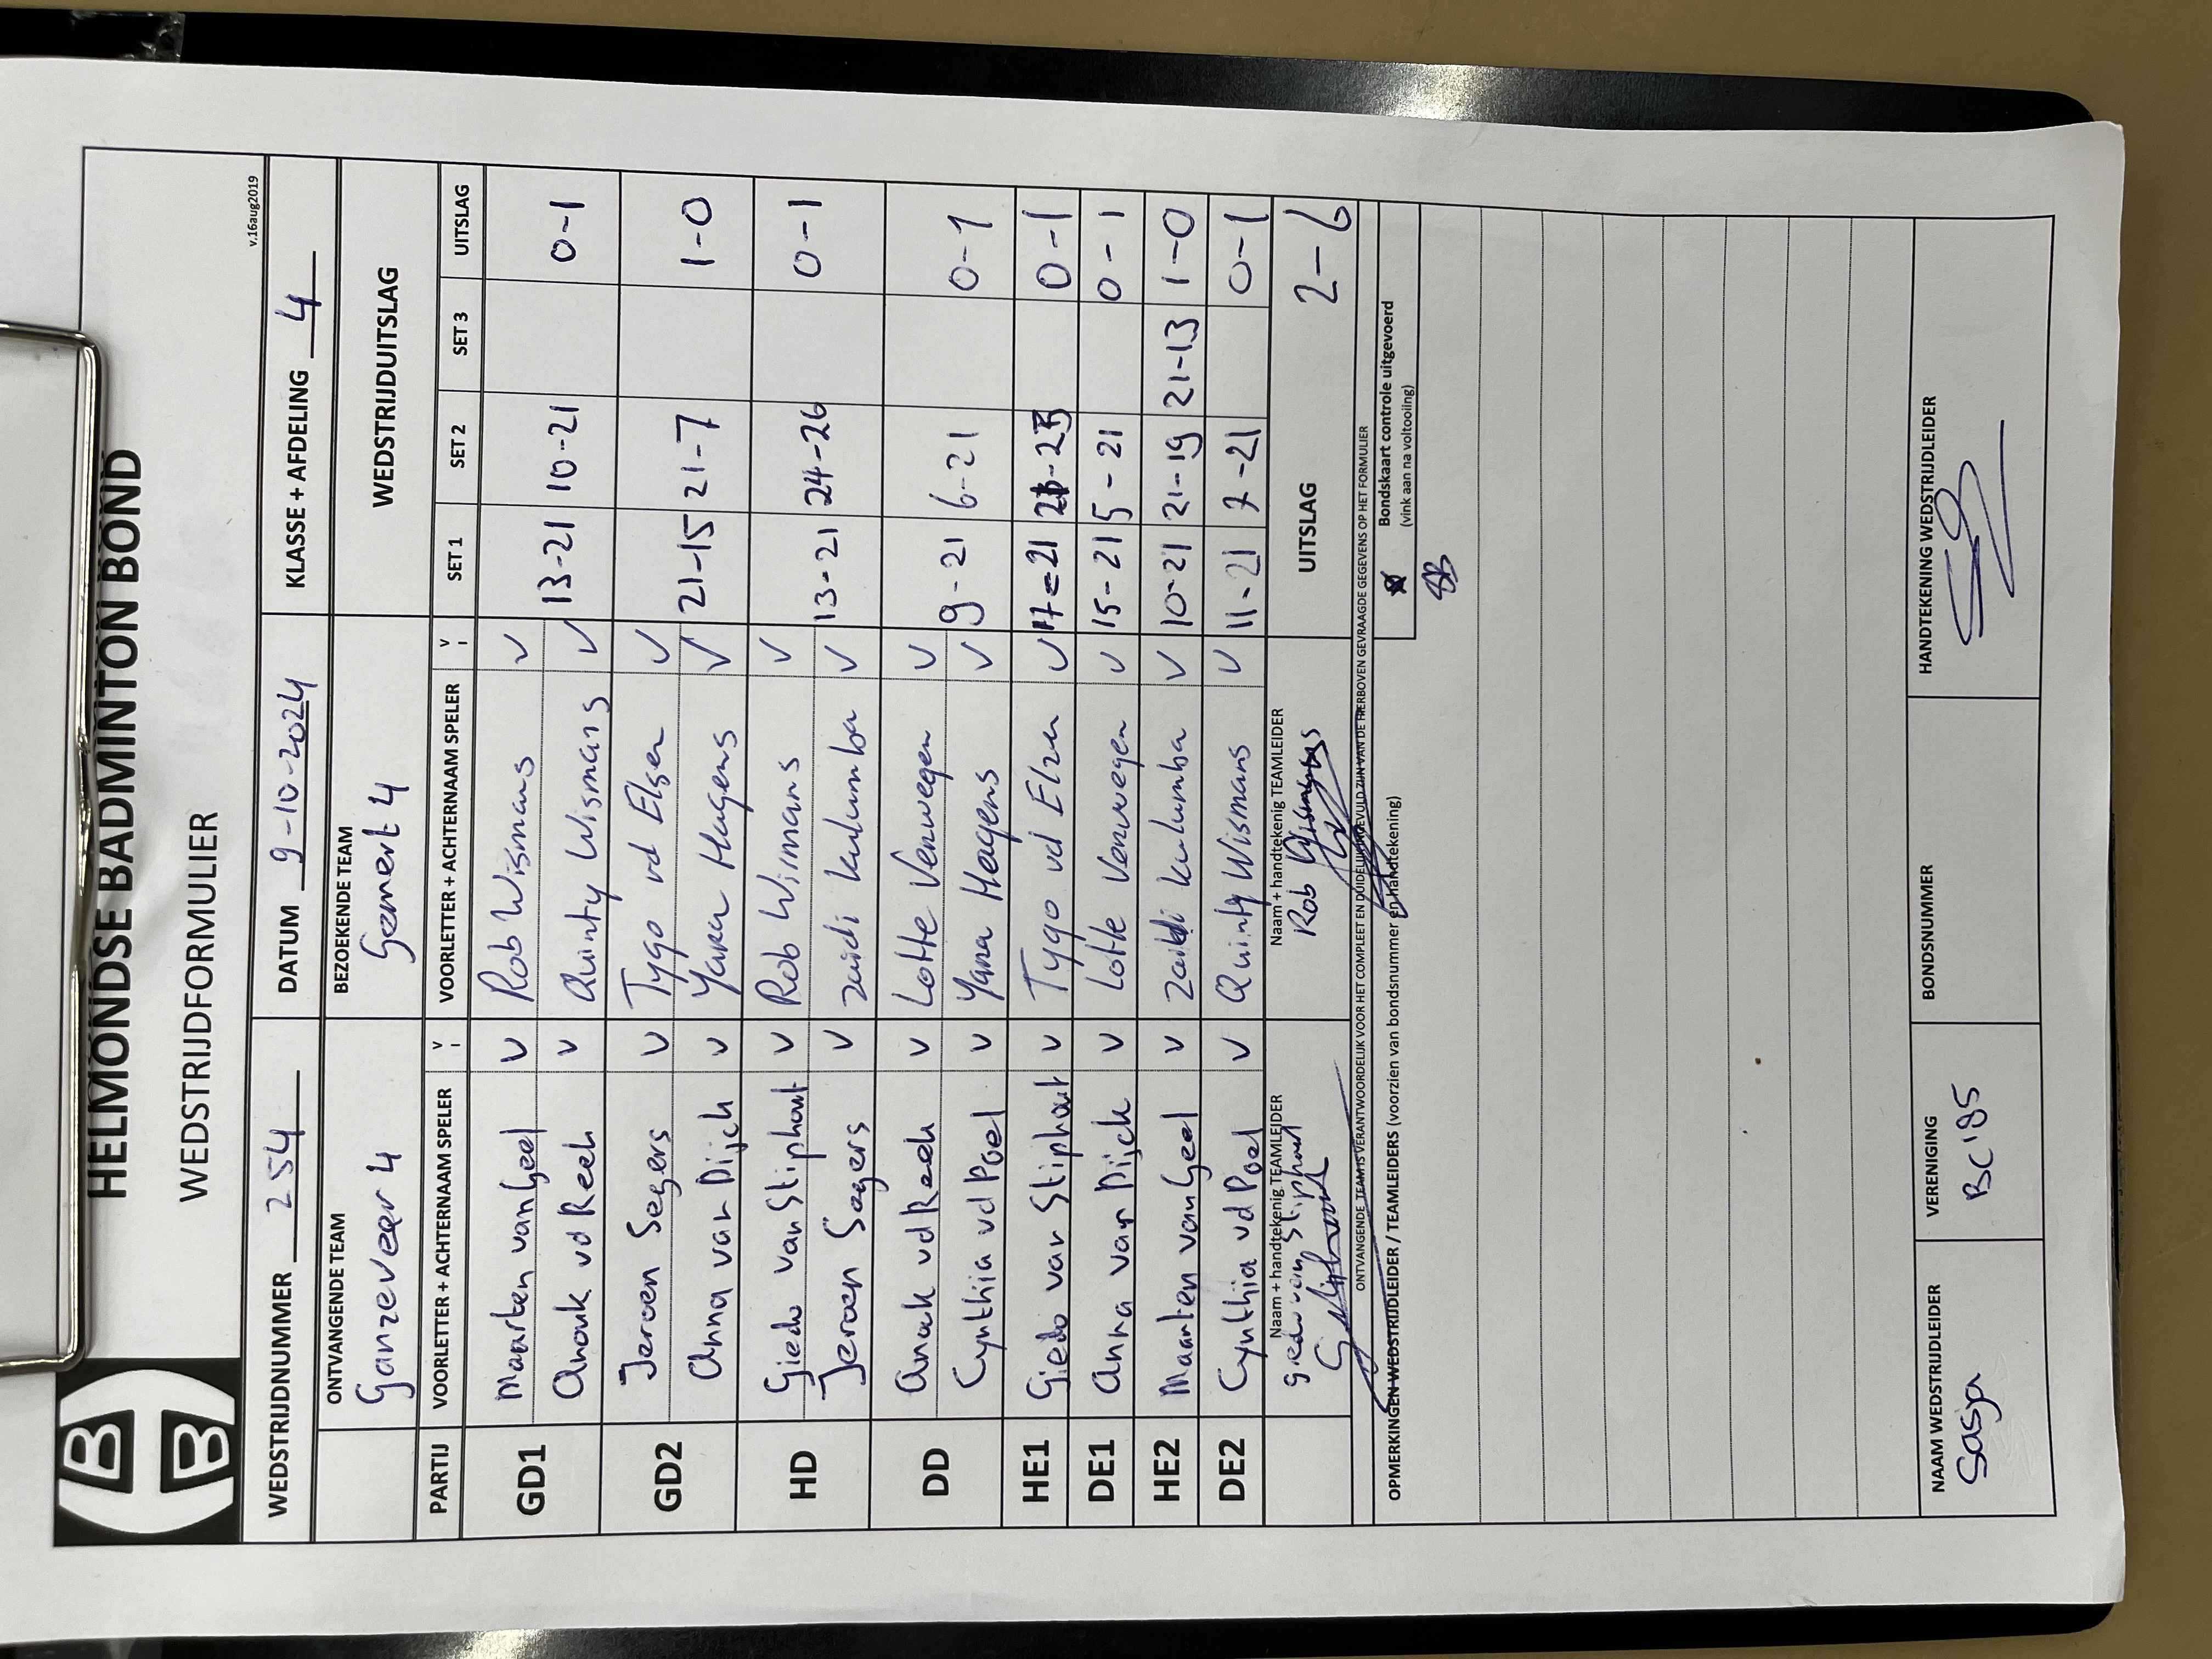 HELMONDSE BADMINTON BOND
WEDSTRIJDFORMULIER
v.16aug2019
WEDSTRIJDNUMMER 254 DATUM 9-10-2024 KLASSE + AFDELING 4
ONTVANGENDE TEAM BEZOEKENDE TEAM WEDSTRIJDUITSLAG
Ganzeveer 4 Gemert 4
PARTIJ VOORLETTER + ACHTERNAAM SPELER V VOORLETTER + ACHTERNAAM SPELER V SET 1 SET 2 SET 3 UITSLAG
GD1 Maarten van Geel V Rob Wismans V
Anouk vd Reek V Quinty Wismans V 13-21 10-21 0-1
GD2 Jeroen Segers V Tygo vd Elsen V
Anna van Dijck V Yara Hagens V 21-15 21-7 1-0
HD Giedo van Stiphout V Rob Wismans V
Jeroen Segers V zaidi kulumba V 13-21 24-26 0-1
DD Anouk vd Reek V Lotte Verwegen V
Cynthia vd Poel V Yara Hagens V 9-21 6-21 0-1
HE1 Giedo van Stiphout V Tygo vd Elzen V 17-21 0-1
DE1 Anna van Dijck V Lotte Verwegen V 15-21 5-21 0-1
HE2 Maarten van Geel V zaidi kulumba V 10-21 21-19 21-13 1-0
DE2 Cynthia vd Poel V Quinty Wismans V 11-21 7-21 0-1
Naam + handtekenig TEAMLEIDER Naam + handtekenig TEAMLEIDER UITSLAG 2-6
Giedo van Stiphout Rob Wismans
ONTVANGENDE TEAM IS VERANTWOORDELIJK VOOR HET COMPLEET EN DUIDELIJK INGEVULD ZIJN VAN DE HIERBOVEN GEVRAAGDE GEGEVENS OP HET FORMULIER
OPMERKINGEN WEDSTRIJDLEIDER / TEAMLEIDERS (voorzien van bondsnummer en handtekening)
Bondskaart controle uitgevoerd
(vink aan na voltooiing)
NAAM WEDSTRIJDLEIDER VERENIGING BONDSNUMMER HANDTEKENING WEDSTRIJDLEIDER
Sasja BC'85